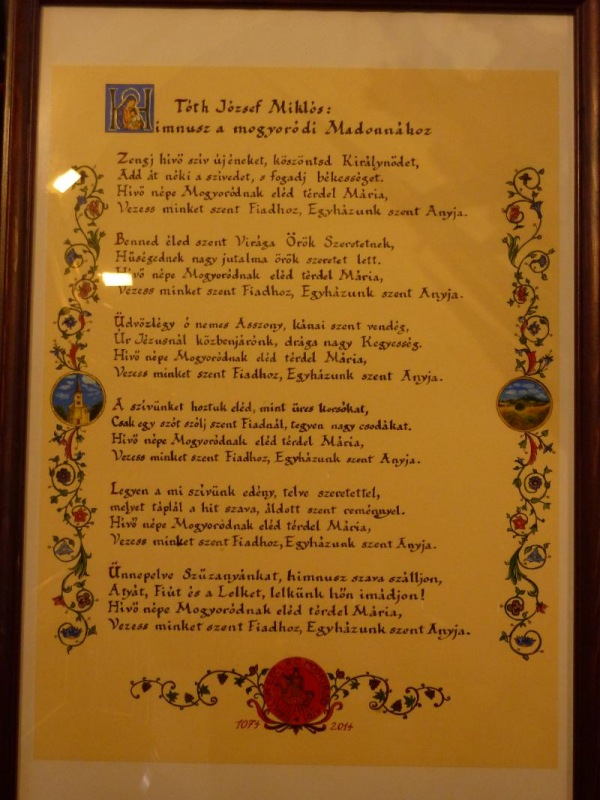 Tóth József Miklós:
Himnusz a mogyoródi Madonnához
Zengj hívő szív újéneket, köszöntsd Királynődet,
Add át néki a szívedet, s fogadj békességet.
Hívő népe Mogyoródnak eléd térdel Mária,
Vezess minket szent Fiadhoz, Egyházunk szent Anyja.
Benned éled szent Virága Örök Szeretetnek,
Hűségednek nagy jutalma örök szeretet lett.
Hívő népe Mogyoródnak eléd térdel Mária,
Vezess minket szent Fiadhoz, Egyházunk szent Anyja.
Üdvözlégy ó nemes Asszony, kánai szent vendég,
Úr Jézusnál közbenjárónk, drága nagy Kegyesség.
Hívő népe Mogyoródnak eléd térdel Mária,
Vezess minket szent Fiadhoz, Egyházunk szent Anyja.
A szívünket hoztuk eléd, mint üres korsókat,
Csak egy szót szólj szent Fiadnál, tegyen nagy csodákat.
Hívő népe Mogyoródnak eléd térdel Mária,
Vezess minket szent Fiadhoz, Egyházunk szent Anyja.
Legyen a mi szívünk edény, telve szeretettel,
melyet táplál a hit szava, áldott szent reménnyel.
Hívő népe Mogyoródnak eléd térdel Mária,
Vezess minket szent Fiadhoz, Egyházunk szent Anyja.
Ünnepelve Szűzanyánkat, himnusz szava szálljon,
Atyát, Fiút és a Lelket, lelkünk hőn imádjon!
Hívő népe Mogyoródnak eléd térdel Mária,
Vezess minket szent Fiadhoz, Egyházunk szent Anyja.
1074 2014